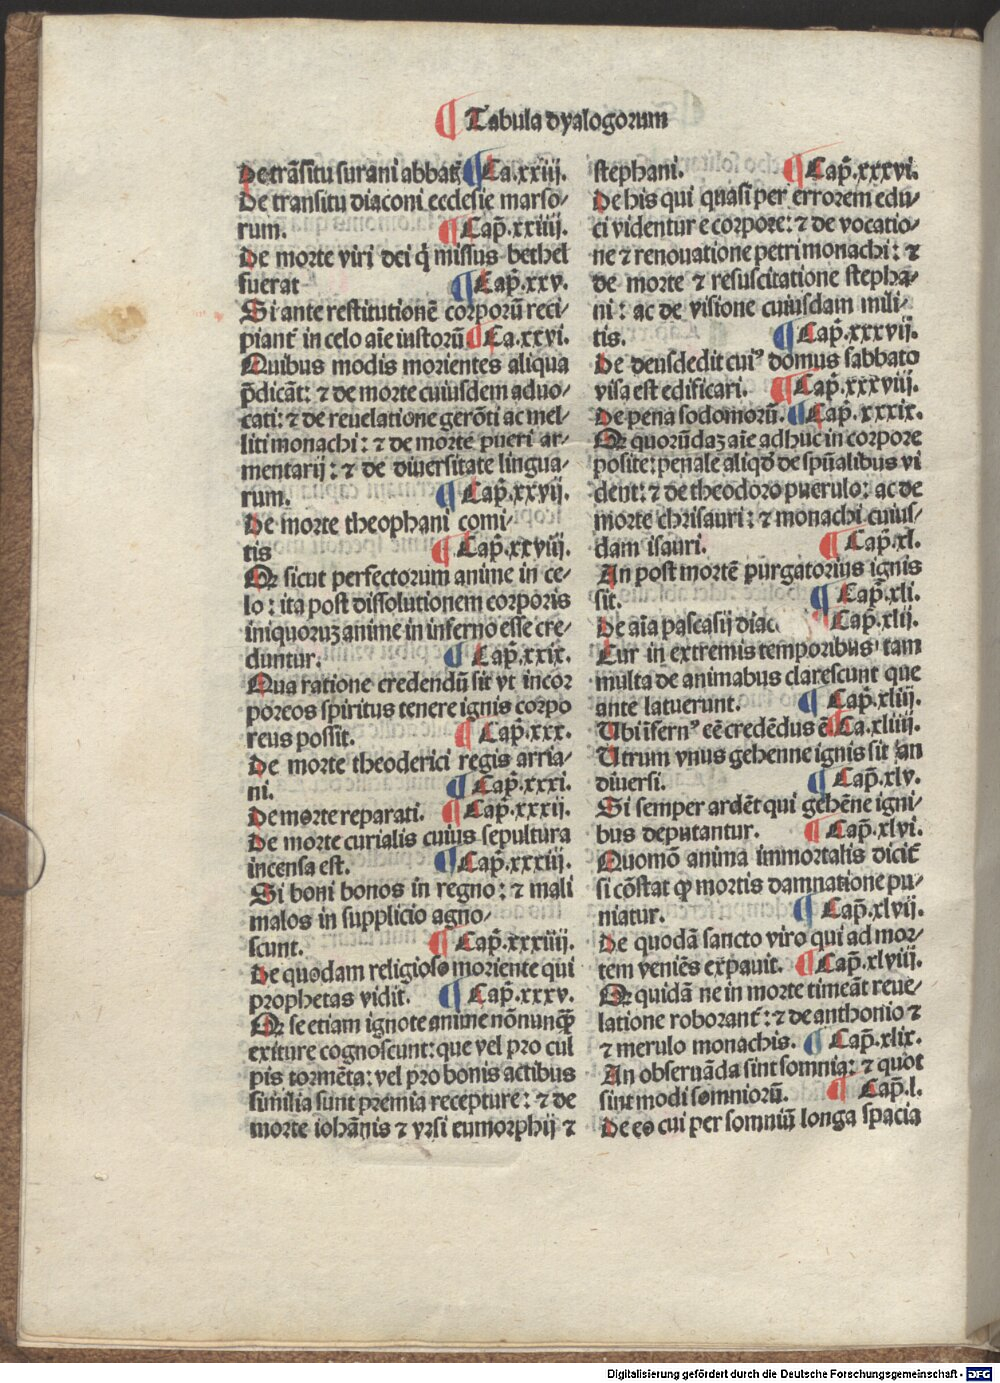 ¶ Tabula dyalogorum
De trãsitu surani abbatꝭ ¶ Ca.xxiij.
De transitu diaconi ecclesie marso⸗
rum. ¶ Cap̃.xxiiij.
De morte viri dei q̇ missus bethel
fuerat ¶ Cap̃.xxv.
Si ante restitutionẽ corporũ reci⸗
piant̃ in celo aĩe iustorũ ¶ Ca.xxvi.
Quibus modis morientes aliqua
p̃dicãt: ⁊ de morte cuiusdem aduo⸗
cati: ⁊ de reuelatione gerõti ac mel⸗
liti monachi: ⁊ de morte pueri ar⸗
mentarij: ⁊ de diuersitate lingua⸗
rum. ¶ Cap̃.xxvij.
De morte theophani comi⸗
tis ¶ Cap̃.xxviij.
Qꝛ sicut perfectorum anime in ce⸗
lo: ita post dissolutionem corporis
iniquoruꝫ anime in inferno esse cre⸗
duntur. ¶ Cap̃.xxix.
Qua ratione credendũ sit vt incor
poreos spiritus tenere ignis corpo
reus possit. ¶ Cap̃.xxx.
De morte theoderici regis arria⸗
ni. ¶ Cap̃.xxxi.
De morte reparati. ¶ Cap̃.xxxij.
De morte curialis cuius sepultura
incensa est. ¶ Cap̃.xxxiij.
Si boni bonos in regno: ⁊ mali
malos in supplicio agno⸗
scunt. ¶ Cap̃.xxxiiij.
De quodam religioso moriente qui
prophetas vidit. ¶ Cap̃.xxxv.
Qꝛ se etiam ignote anime nõnunqꝫ
exiture cognoscunt: que vel pro cul
pis tormẽta: vel pro bonis actibus
similia sunt premia recepture: ⁊ de
morte iohãnis ⁊ vrsi eumorphij ⁊
stephani. ¶ Cap̃.xxxvi.
De his qui quasi per errorem edu⸗
ci videntur e corpore: ⁊ de vocatio⸗
ne ⁊ renouatione petri monachi: ⁊
de morte ⁊ resuscitatione stepha⸗
ni: ac de visione cuiusdam mili⸗
tis. ¶ Cap̃.xxxvij.
De densdedit cuiꝰ domus sabbato
visa est edificari. ¶ Cap̃.xxxviij.
De pena sodomorũ. ¶ Cap̃.xxxix.
Qꝛ quorũdaꝫ aĩe adhuc in corpore
posite: penale aliqď de spũalibus vi
dent: ⁊ de theodoro puerulo: ac de
morte chrisauri: ⁊ monachi cuius⸗
dam isauri. ¶ Cap̃.xl.
An post mortẽ purgatorius ignis
sit. ¶ Cap̃.xli.
De aĩa pascasij diac. ¶ Cap̃.xlij.
Cur in extremis temporibus tam
multa de animabus clarescunt que
ante latuerunt. ¶ Cap̃.xliij.
Ubi ĩfernꝰ eẽ credẽdus ẽ ¶ Ca.xliiij.
Utrum vnus gehenne ignis sit an
diuersi. ¶ Cap̃.xlv.
Si semper ardẽt qui gehẽne igni⸗
bus deputantur. ¶ Cap̃.xlvi.
Quomõ anima immortalis dicit̃
si cõstat ꝙ mortis damnatione pu⸗
niatur. ¶ Cap̃.xlvij.
De quodã sancto viro qui ad mor⸗
tem veniẽs expauit. ¶ Cap̃.xlviij.
Qꝛ quidã ne in morte timeãt reue⸗
latione roborant̃: ⁊ de anthonio ⁊
⁊ merulo monachis. ¶ Cap̃.xlix.
An obseruãda sint somnia: ⁊ quot
sint modi somniorũ. ¶ Cap̃.l.
De eo cui per somniũ longa spacia
Digitalisierung gefördert durch die Deutsche Forschungsgemeinschaft - DFG